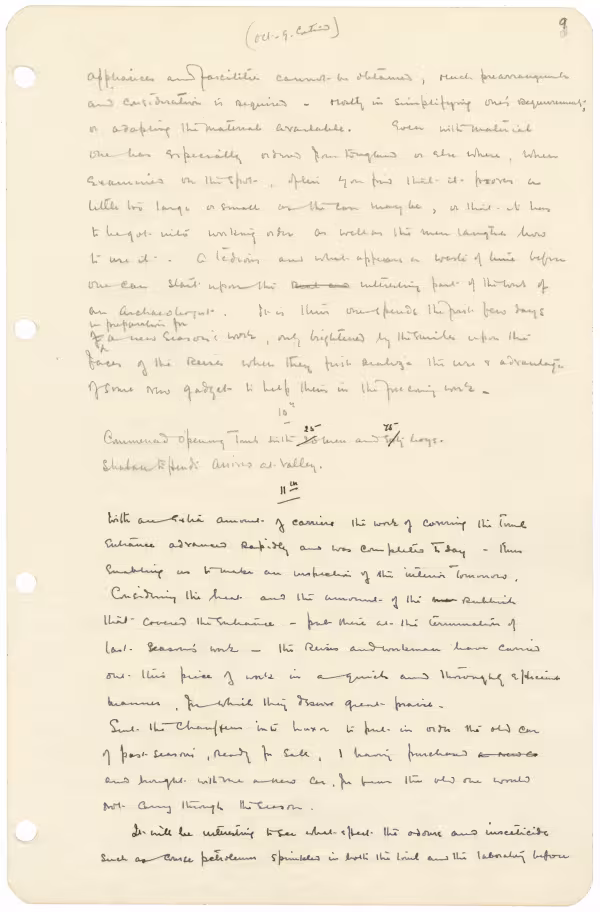 (Oct. 9. Contin)
9
appliances and facilities cannot be obtained, much prearrangement
and consideration is required – mostly in simplifying one's requirements,
or adapting the material available. Even with material
one has especially ordered from England or elsewhere, when
examined on the spot, often you find that it proves a
little too large or small as the case may be, or that it has
to be got into working order as well as the men taught how
to use it. A tedious and what appears a waste of time before
one can start upon the interesting part of the work of
an Archaeologist. It is thus one spends the first few days
in preparation for
of a new season's work, only brightened by the smiles upon the
faces of the Reises when they first realize the use & advantage
of some new gadget to help them in the forthcoming work.
10th
Commenced opening Tomb with 25 men and 75 boys.
Shaban Effendi arrives at Valley.
11th
With an extra amount of carriers the work of covering the tomb
entrance advanced rapidly and was completed today – thus
enabling us to make an inspection of the interior tomorrow.
Considering the heat and the amount of the rubbish
that covered the entrance – put there at the termination of
last season's work – the Reises and workmen have carried
out this piece of work in a quick and thoroughly efficient
manner, for which they deserve great praise.
Sent the Chauffeur into Luxor to put in order the old car
of past seasons, ready for sale, I having purchased
and brought with me a new car, for fear the old one would
not carry through the season.
It will be interesting to see what effect the odours and insecticide
such as coarse petroleum sprinkled in both the tomb and the laboratory before